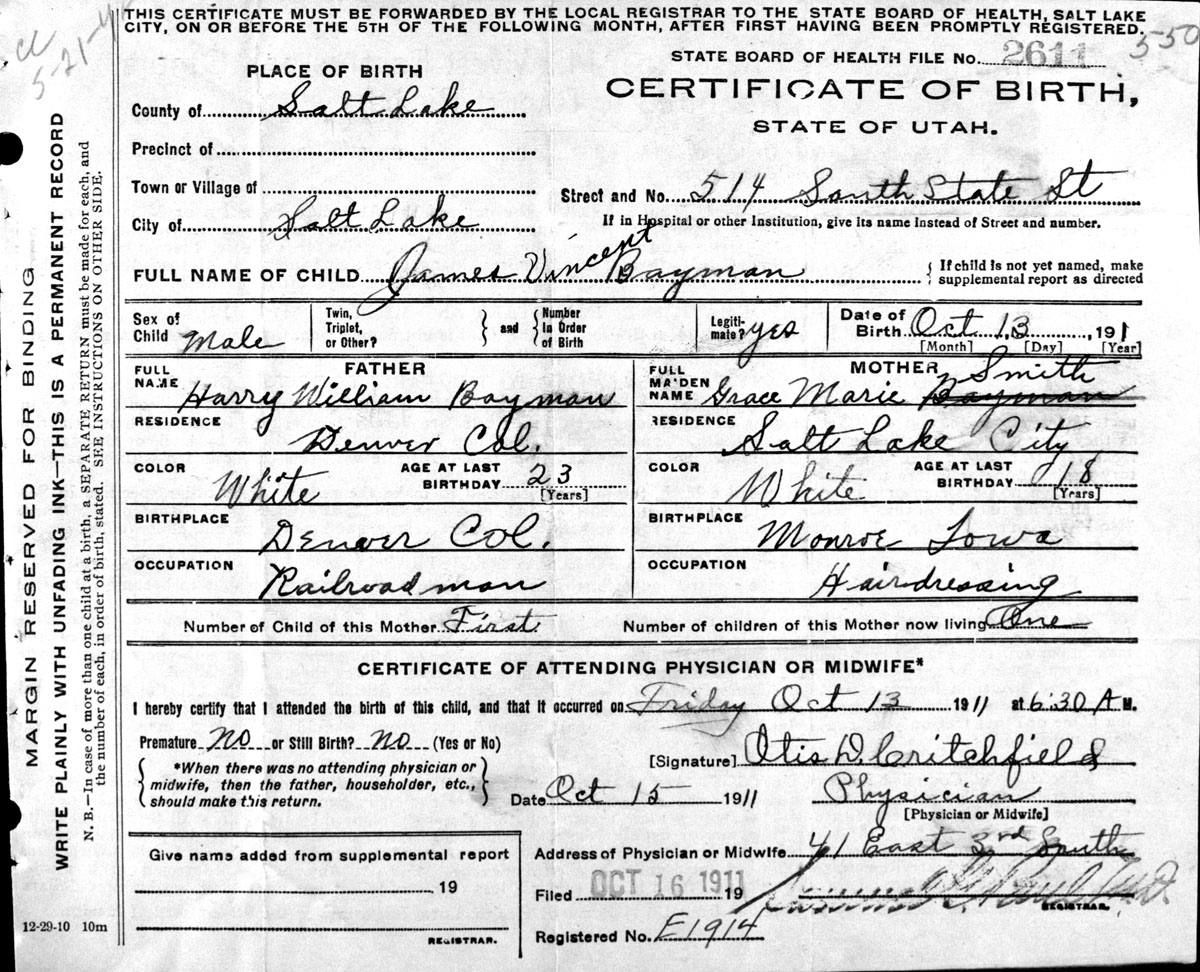 THIS CERTIFICATE MUST BE FORWARDED BY THE LOCAL REGISTRAR TO THE STATE BOARD OF HEALTH, SALT LAKE
CITY, ON OR BEFORE THE 5TH OF THE FOLLOWING MONTH, AFTER FIRST HAVING BEEN PROMPTLY REGISTERED.
5-50
5-21-
MARGIN RESERVED FOR BINDING
WRITE PLAINLY WITH UNFADING INK—THIS IS A PERMANENT RECORD
N. B.—In case of more than one child at a birth, a SEPARATE RETURN must be made for each, and
the number of each, in order of birth, stated. SEE INSTRUCTIONS ON OTHER SIDE.
STATE BOARD OF HEALTH FILE NO. 2611
CERTIFICATE OF BIRTH,
STATE OF UTAH.
PLACE OF BIRTH
County of Salt Lake
Precinct of
Town or Village of
City of Salt Lake
Street and No. 514 South State St
If in Hospital or other Institution, give its name instead of Street and number.
FULL NAME OF CHILD James Vincent Bayman
{ If child is not yet named, make
supplemental report as directed
Sex of Child Male
Twin, Triplet, or Other? } and { Number in Order of Birth
Legitimate? yes
Date of Birth Oct 13, 1911
[Month] [Day] [Year]
FATHER
FULL NAME Harry William Bayman
RESIDENCE Denver Col.
COLOR White AGE AT LAST BIRTHDAY 23
[Years]
BIRTHPLACE Denver Col.
OCCUPATION Railroad man
MOTHER
FULL MAIDEN NAME Grace Marie Bayman Smith
RESIDENCE Salt Lake City
COLOR White AGE AT LAST BIRTHDAY 18
[Years]
BIRTHPLACE Monroe Iowa
OCCUPATION Hairdressing
Number of Child of this Mother First Number of children of this Mother now living One
CERTIFICATE OF ATTENDING PHYSICIAN OR MIDWIFE*
I hereby certify that I attended the birth of this child, and that it occurred on Friday Oct 13 1911 at 6:30 A M.
Premature No or Still Birth? No (Yes or No)
{ *When there was no attending physician or
midwife, then the father, householder, etc.,
should make this return. }
[Signature] Otis D. Critchfield
Date Oct 15 1911 Physician
[Physician or Midwife]
Give name added from supplemental report
19
REGISTRAR.
Address of Physician or Midwife 41 East 3rd South
Filed OCT 16 1911 19
REGISTRAR.
Registered No. E1914
12-29-10 10m